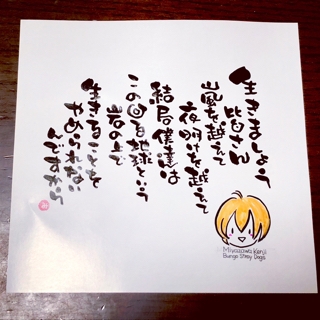 生きましょう
皆さん
嵐を越えて
夜明けを越えて
結局僕達は
この回る地球という
岩の上で
生きることを
やめられない
んですから
Miyazawa Kenji
Bungo Stray Dogs